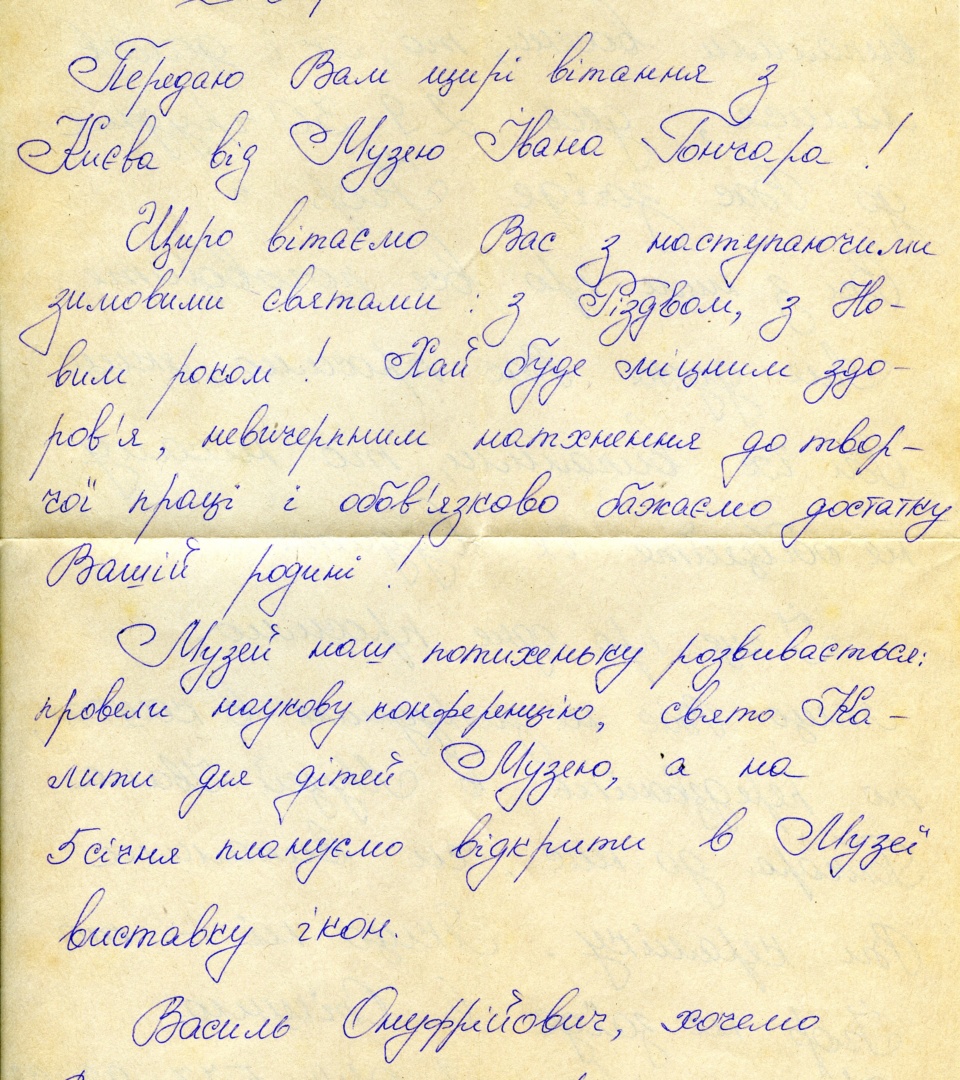 Передаю Вам щирі вітання з
Києва від Музею Івана Гончара !
Щиро вітаємо Вас з наступаючими
зимовими святами : з Різдвом, з Но-
вим роком ! Хай буде міцним здо-
ров'я, невичерпним натхнення до твор-
чої праці і обов'язково бажаємо достатку
Вашій родині !
Музей наш потихеньку розвивається:
провели наукову конференцію, свято Ка-
лити для дітей Музею, а на
5 січня плануємо відкрити в Музеї
виставку ікон.
Василь Онуфрійович, хочемо